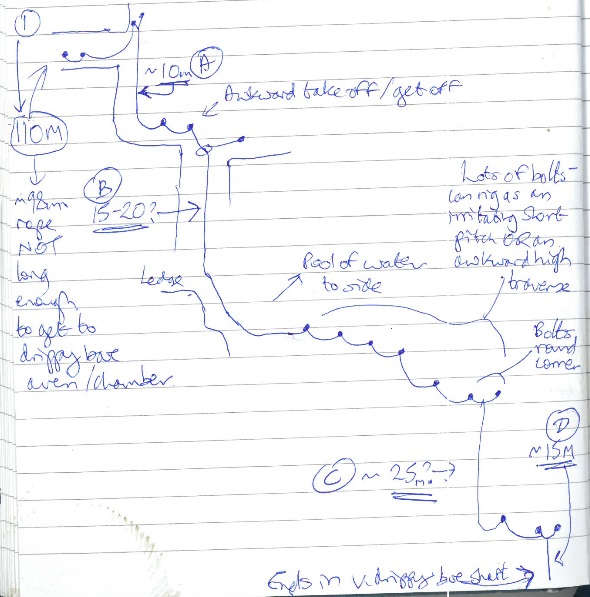 1
~10m A
Awkward take off/get off
110M
B
15-20?
rope
NOT
long
enough
to get to
drippy base
aven/chamber
Ledge
Pool of water
to side
Lots of bolts-
can rig as an
irritating short
pitch OR an
awkward high
traverse
Bolts
round
corner
C ~ 25m?-?
D
~15M
Ends in v. drippy base shaft